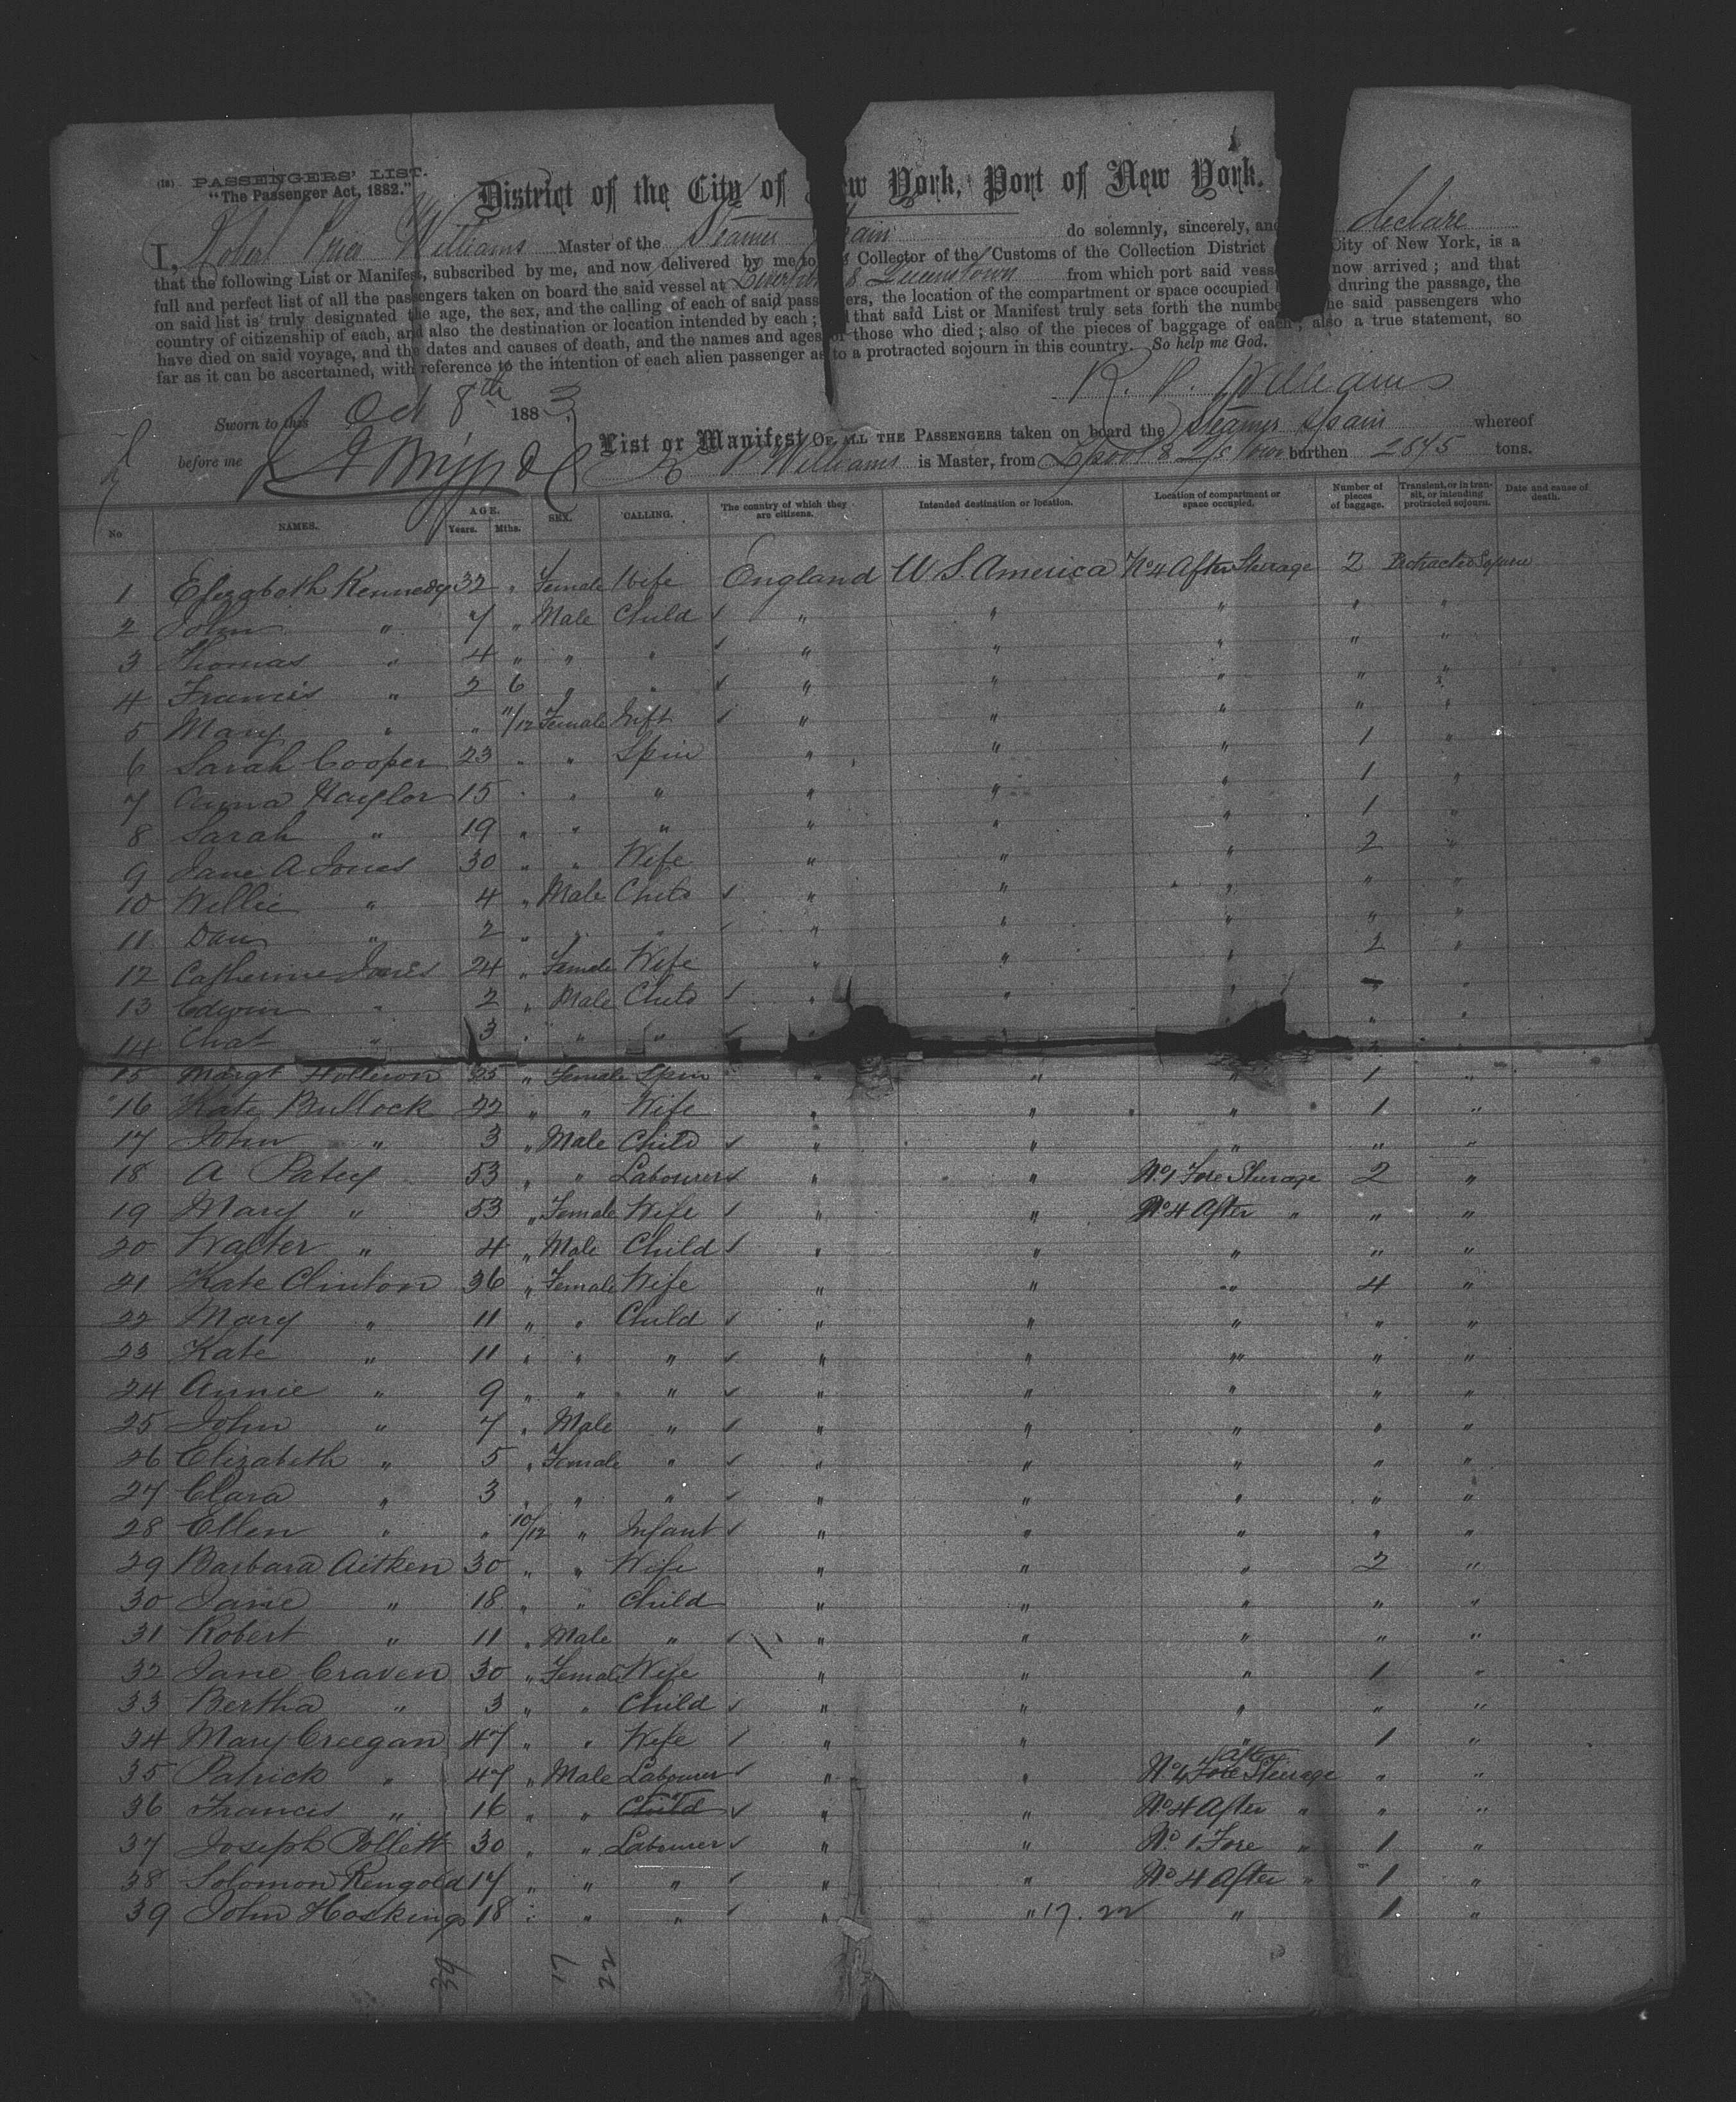 (18) PASSENGERS' LIST.
"The Passenger Act, 1882."
District of the City of New York, Port of New York.
I, Robert Price Williams Master of the Steamer Spain do solemnly, sincerely, and declare
that the following List or Manifest, subscribed by me, and now delivered by me to Collector of the Customs of the Collection District City of New York, is a
full and perfect list of all the passengers taken on board the said vessel at Liverpool & Queenstown from which port said vessel now arrived; and that
on said list is truly designated the age, the sex, and the calling of each of said passengers, the location of the compartment or space occupied during the passage, the
country of citizenship of each, and also the destination or location intended by each; that said List or Manifest truly sets forth the number the said passengers who
have died on said voyage, and the dates and causes of death, and the names and ages of those who died; also of the pieces of baggage of each; also a true statement, so
far as it can be ascertained, with reference to the intention of each alien passenger as to a protracted sojourn in this country. So help me God.
R. P. Williams
Sworn to this Oct 8th 1883
before me
List or Manifest OF ALL THE PASSENGERS taken on board the Steamer Spain whereof
R P Williams is Master, from L'pool & Q's town burthen 2845 tons.
No NAMES. AGE. Years. Mths. SEX. CALLING. The country of which they are citizens. Intended destination or location. Location of compartment or space occupied. Number of pieces of baggage. Transient, or in transit, or intending protracted sojourn. Date and cause of death.
1 Elizabeth Kennedy 32 " Female Wife England U.S. America No 4 After Steerage 2 Protracted Sojourn
2 John " 7 " Male Child " " " " "
3 Thomas " 4 " " " " " " " "
4 Francis " 2 6 " " " " " " "
5 Mary " " 11/12 Female Inft " " " " "
6 Sarah Cooper 23 " " Spin " " " 1 "
7 Anna Haylor 15 " " " " " " 1 "
8 Sarah " 19 " " " " " " 1 "
9 Jane A Jones 30 " " Wife " " " 2 "
10 Willie " 4 " Male Child " " " " "
11 Dan " 2 " " " " " " " "
12 Catherine Jones 24 " Female Wife " " " 2 "
13 Edwin " 2 " Male Child " " " "
14 Chas " 3 " " " "
15 Margt 25 " Female Spin " " " 1 "
16 Kate Bullock 22 " " Wife " " " 1 "
17 John " 3 " Male Child " " " " "
18 A Patey 53 " " Labourer " " No 1 Fore Steerage 2 "
19 Mary " 53 " Female Wife " " No 4 After " " "
20 Walter " 4 " Male Child " " " " "
21 Kate Clinton 36 " Female Wife " " " 4 "
22 Mary " 11 " " Child " " " " "
23 Kate " 11 " " " " " " " "
24 Annie " 9 " " " " " " " "
25 John " 7 " Male " " " " " "
26 Elizabeth " 5 " Female " " " " " "
27 Clara " 3 " " " " " " " "
28 Ellen " " 10/12 " Infant " " " " "
29 Barbara Aitken 30 " " Wife " " " 2 "
30 Janie " 18 " " Child " " " " "
31 Robert " 11 " Male " " " " " "
32 Jane Craven 30 " Female Wife " " " 1 "
33 Bertha " 3 " " Child " " " " "
34 Mary Creegan 47 " " Wife " " " 1 "
35 Patrick " 47 " Male Labourer " " No 4 Fore After Steerage " "
36 Francis " 16 " " Child " " No 4 After " " "
37 Joseph Pollett 30 " " Labourer " " No. 1 Fore " 1 "
38 Solomon Rengold 17 " " " " " No 4 After " 1 "
39 John Hoskings 18 " " " " " 17. 22 " 1 "
39 17 22